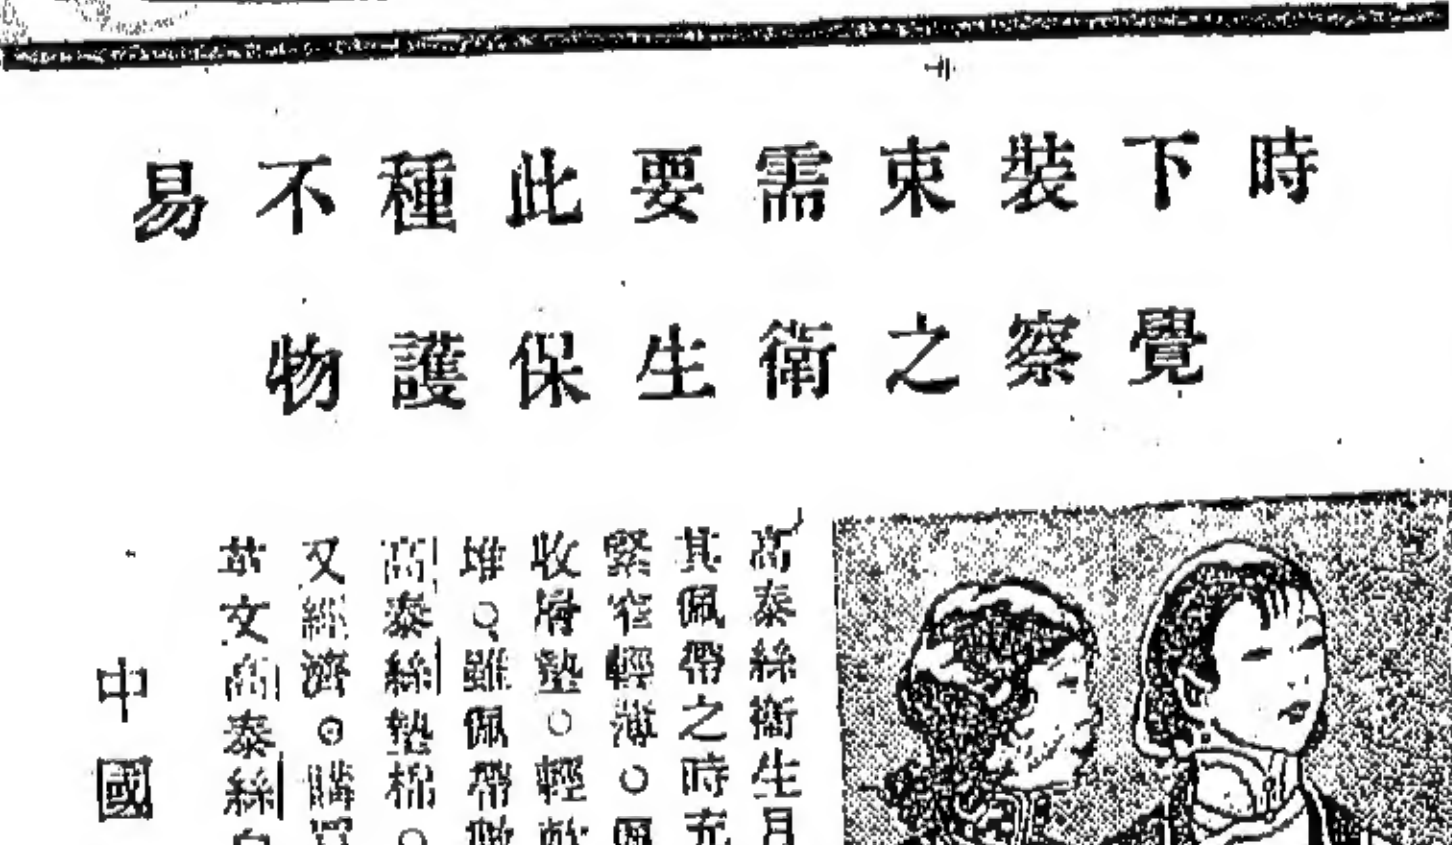 時下裝束需要此種不易
覺察之衛生保護物
高泰絲衛生月
其佩帶之時充
緊窄輕薄。佩
收屑墊。輕軟
堆。雖佩帶
高泰絲墊棉。
又經濟。購買
英文高泰絲
中國